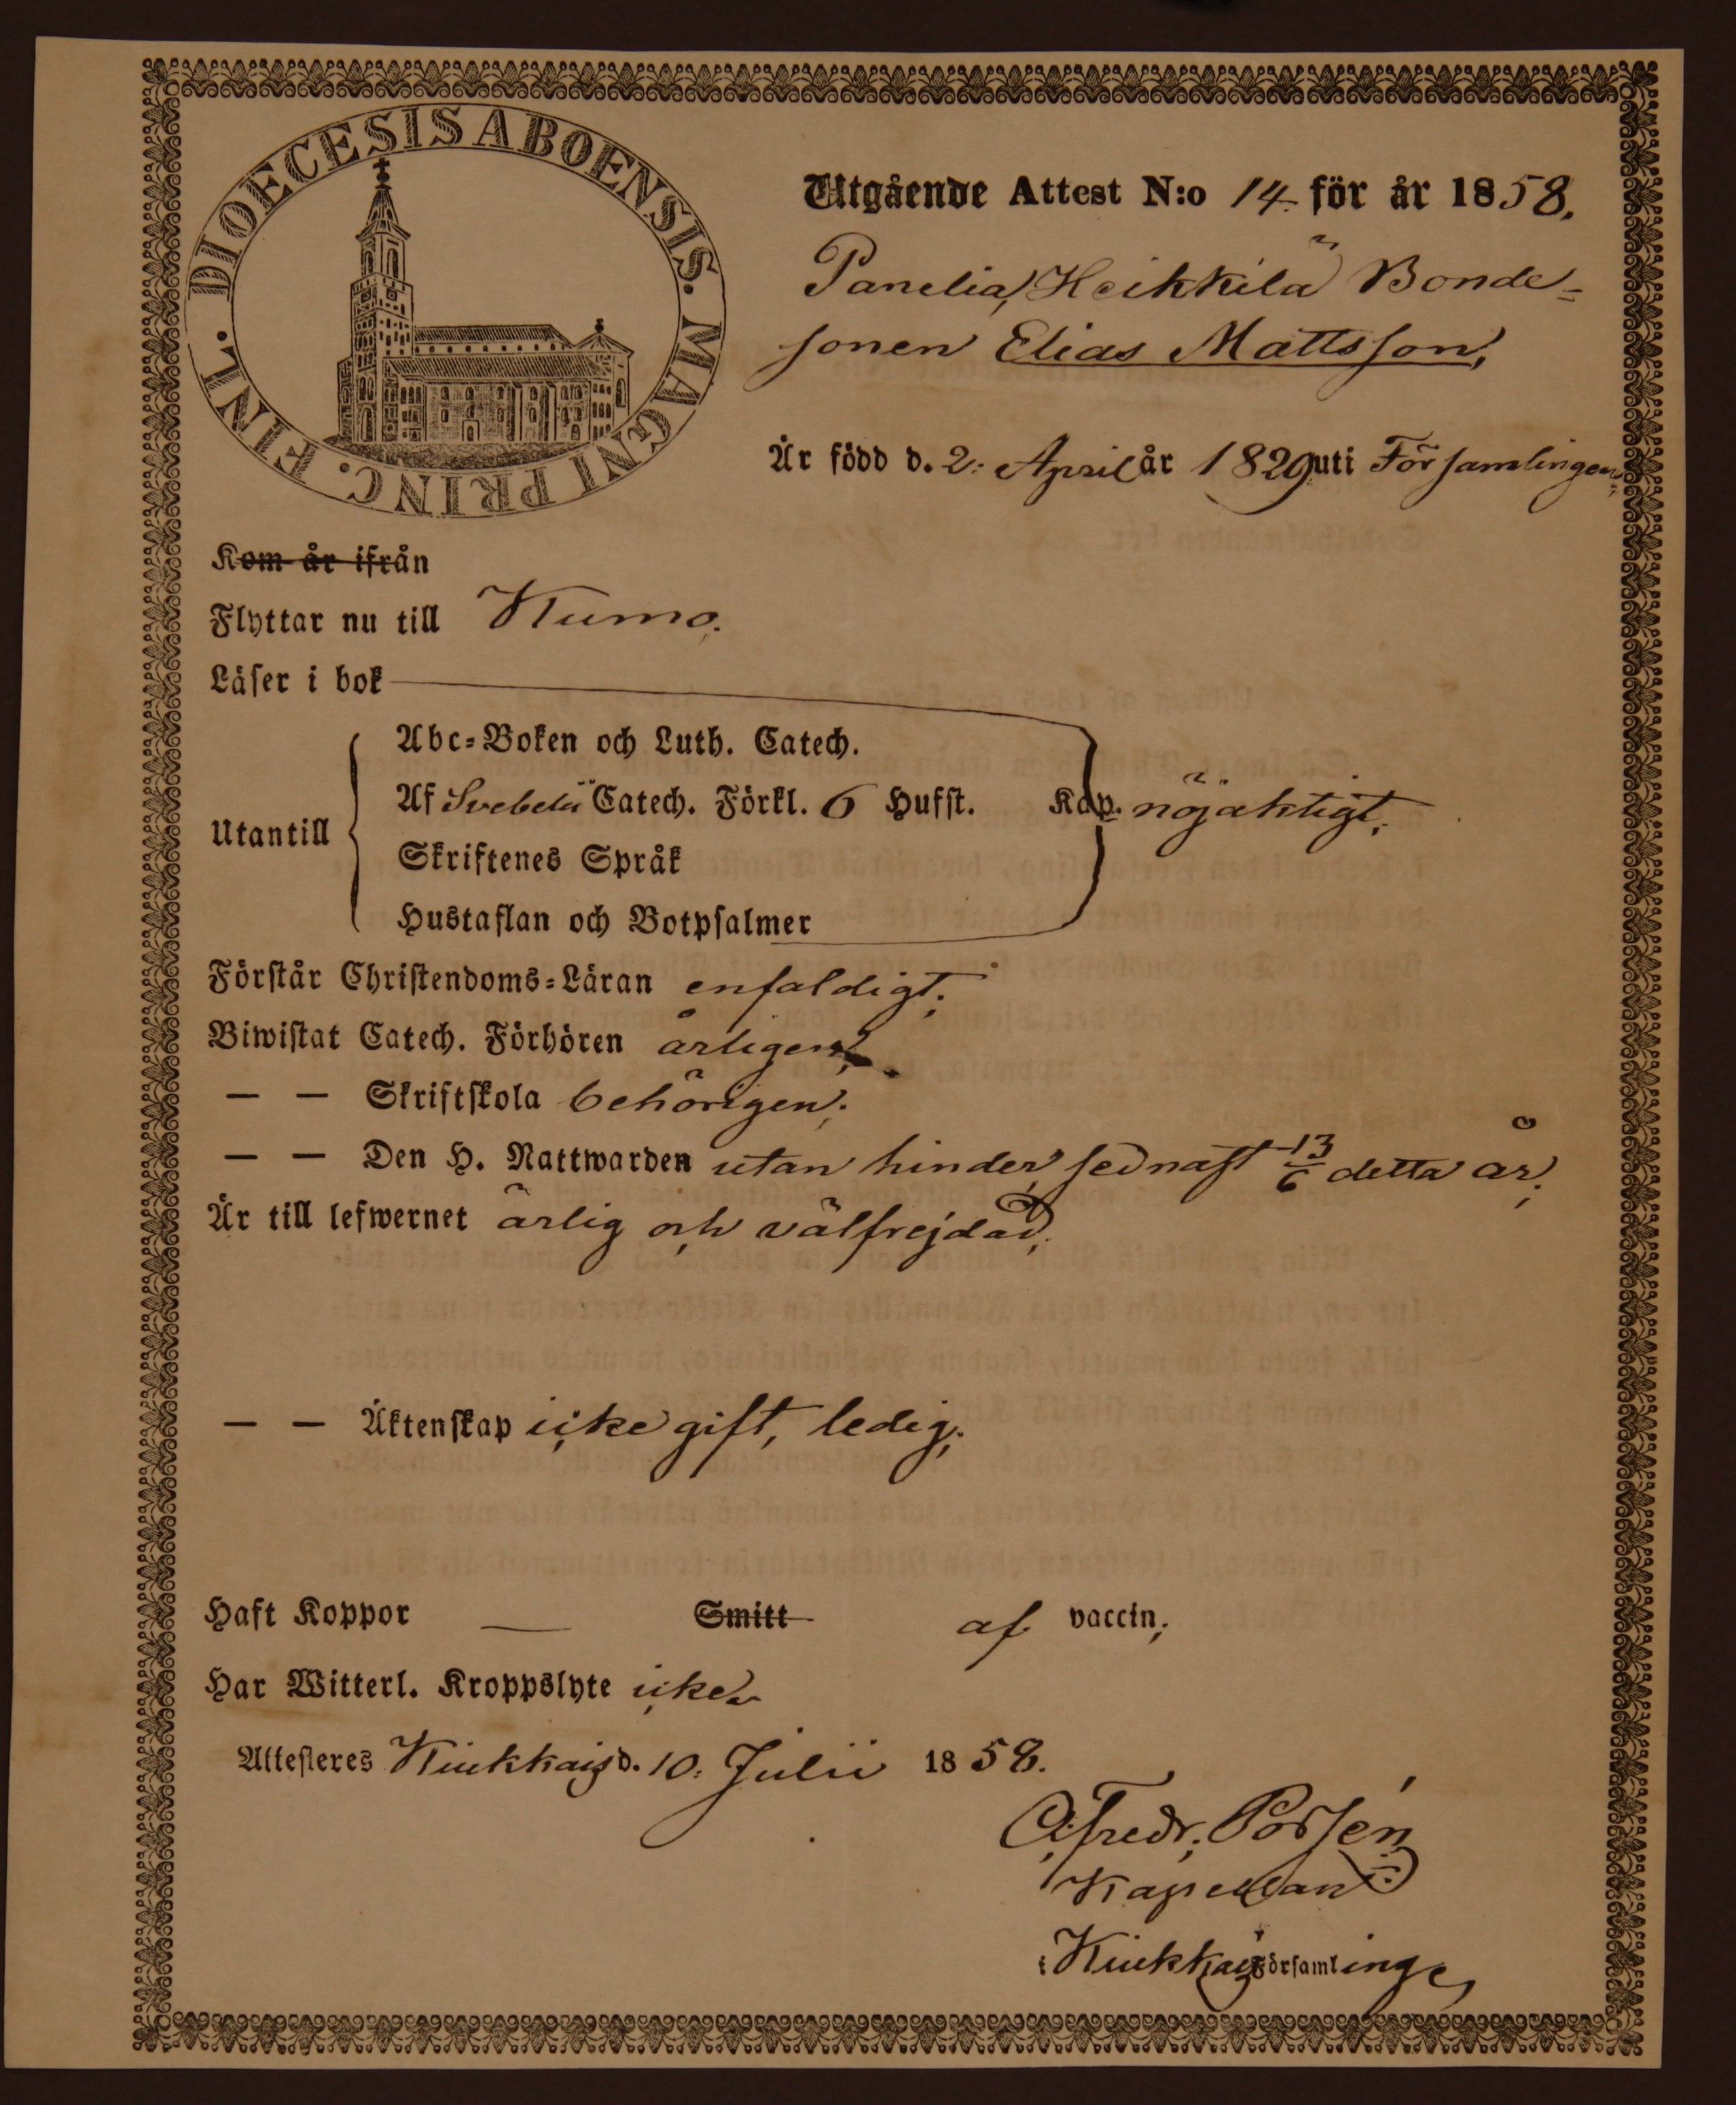 DIOECESIS ABOENSIS. MAGNI PRINC. FINL.
Utgående Attest N:o 14. för år 1858.
Panelia, Heikkilä Bonde-
sonen Elias Mattsson,
Är född d. 2: April år 1829 uti Församlingen;
Kom år ifrån
Flyttar nu till Kumo.
Läser i bok
Abc-Boken och Luth. Catech.
Af Svebelii Catech. Förkl. 6 Hufst. Kap. nöjaktigt;
Utantill
Skriftenes Språk
Hustaflan och Botpsalmer
Förstår Christendoms-Läran enfaldigt;
Biwistat Catech. Förhören årligen;
— — Skriftskola behörigen;
— — Den H. Nattwarden utan hinder, sednast 13/6 detta år;
Är till lefwernet ärlig och välfrejdad;
— — Äktenskap icke gift, ledig;
Haft Koppor — Smitt af vaccin;
Har Witterl. Kroppslyte icke
Attesteres Kiukkais d. 10: Julii 1858.
Fredr. Porsén
Kapellan
i Kiukkais Församlinge